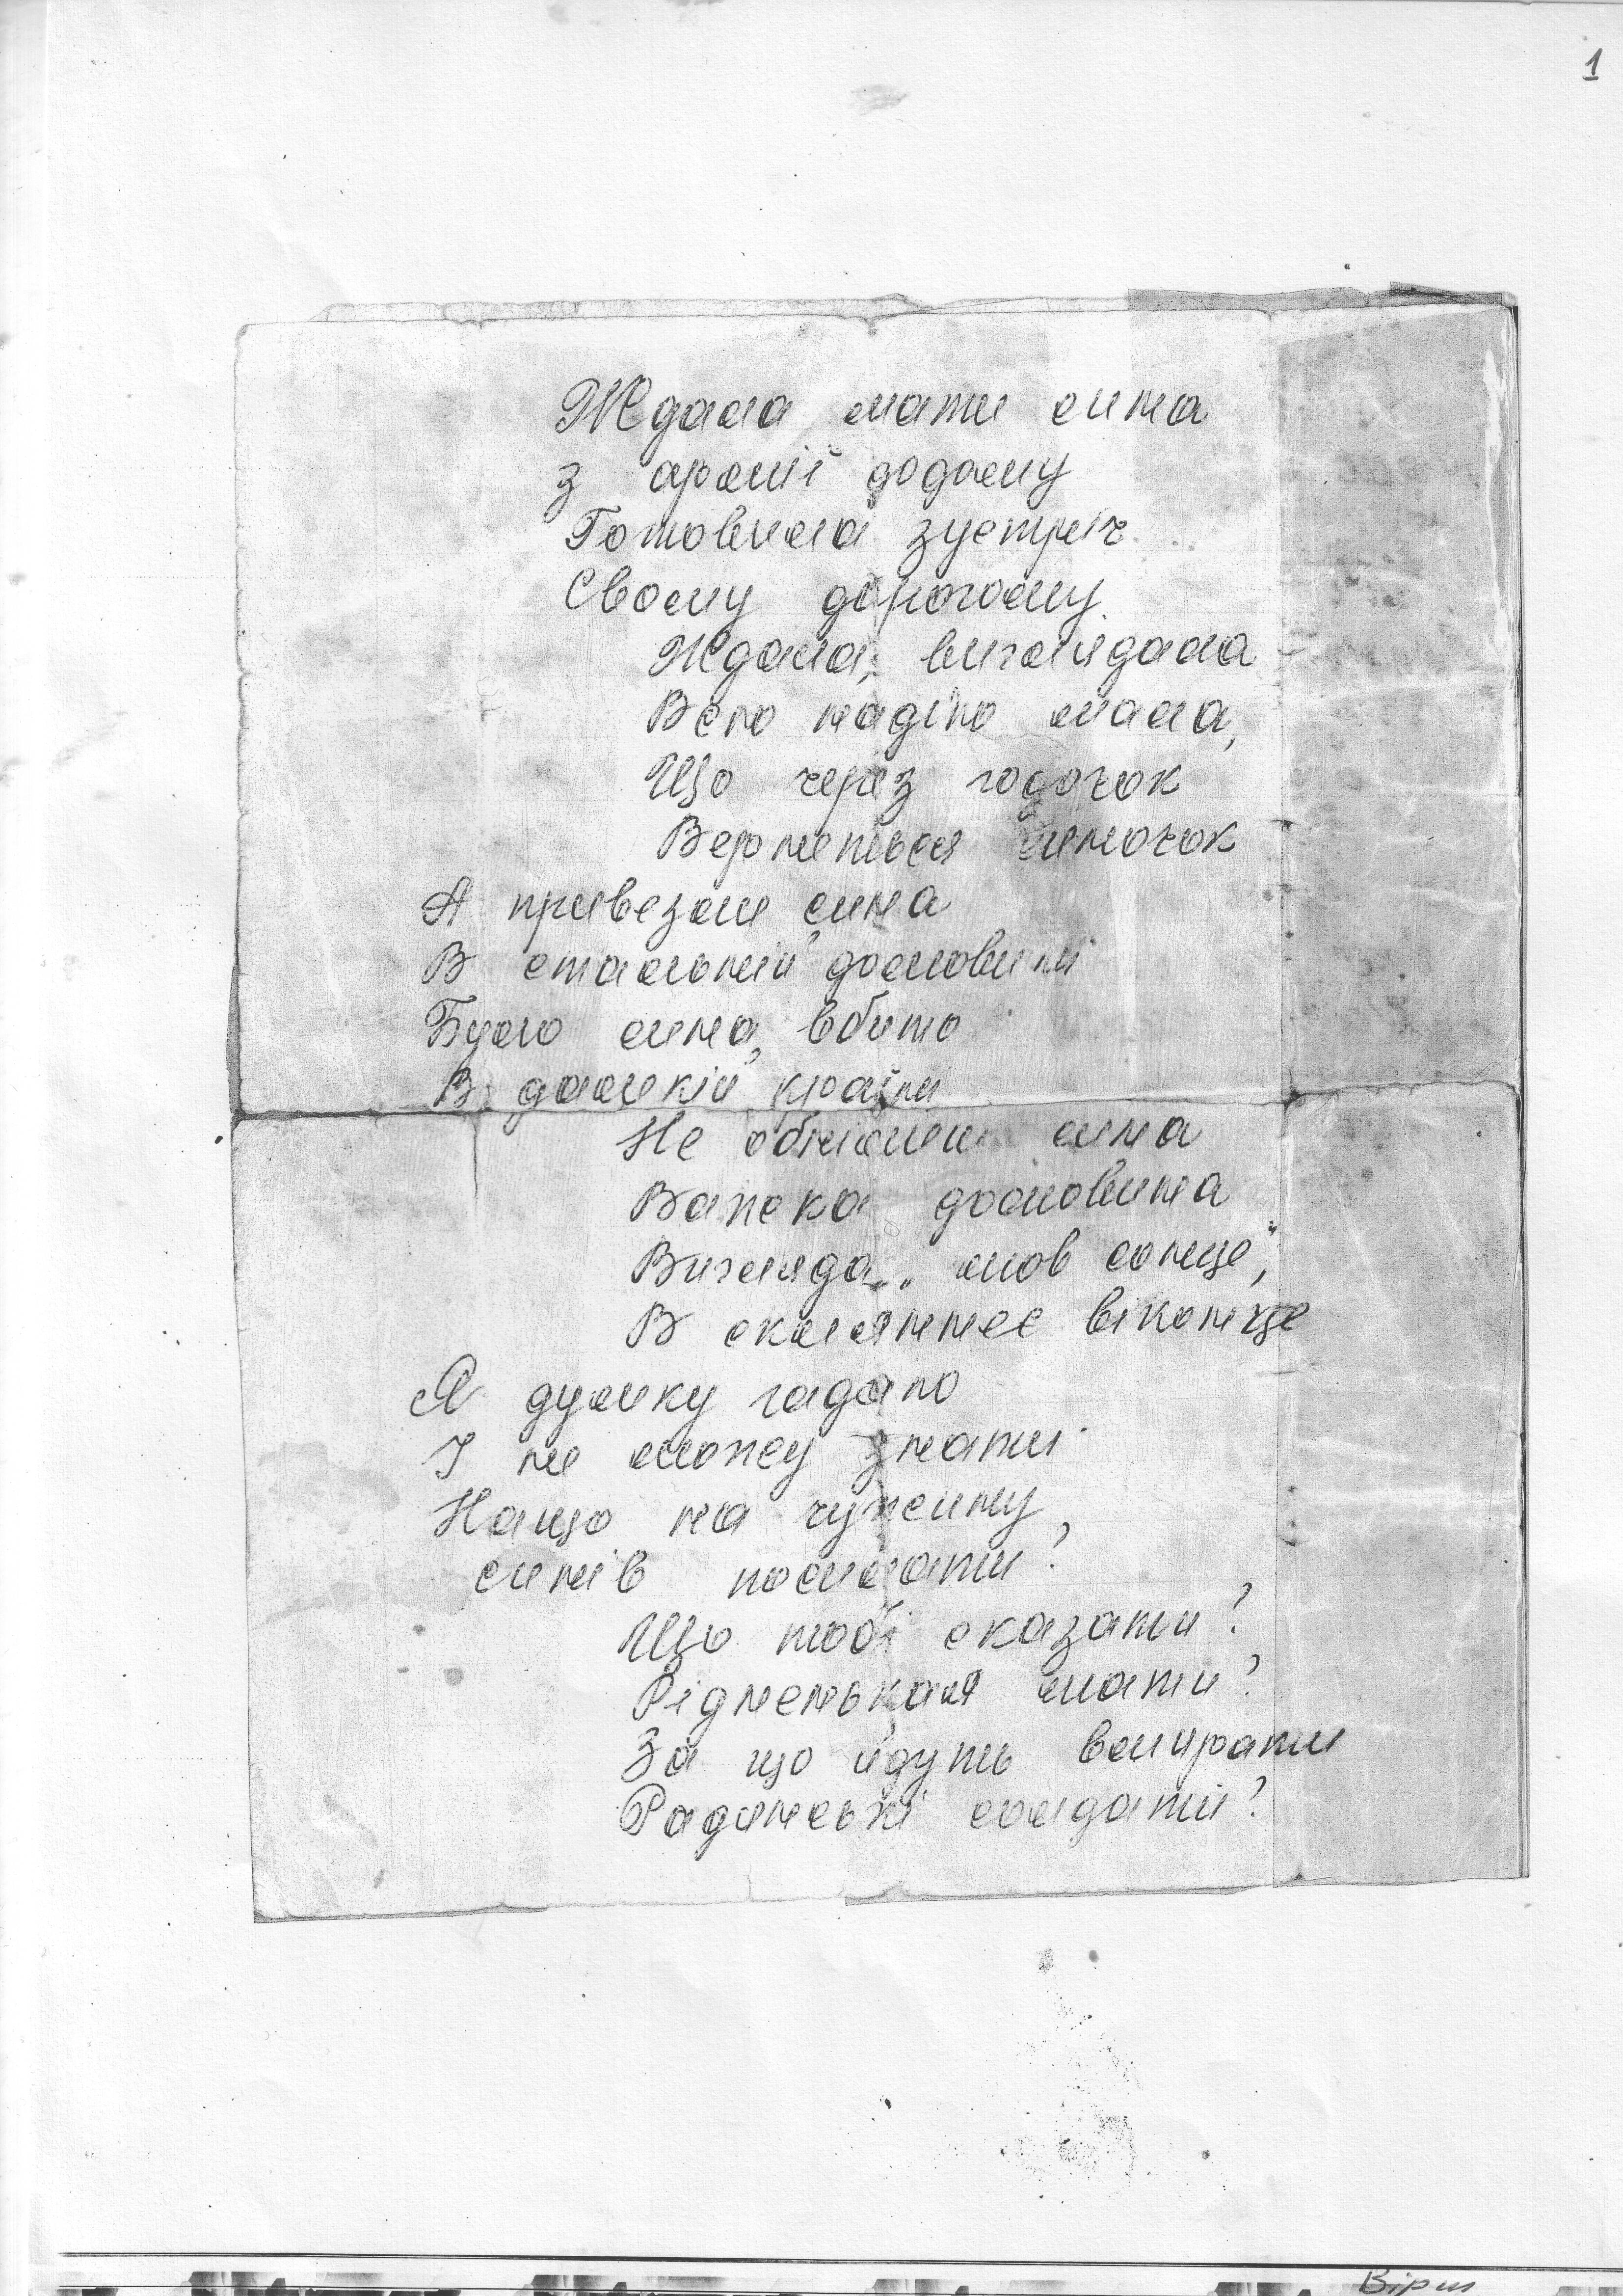 1
Ждала мати сина
з армії додому
Готовила зустріч
Свому дорогому.
Ждала, виглядала
Всю надію мала,
Що через годочок
Вернеться синочок
А привезли сина
В стальній домовині
Було сина, вбито
В далекій країні
Не обніме сина
Важка домовина
Вигляда „мов сонце",
В скляннеє віконце
Я думку гадаю
І не можу знати
Нащо на чужину,
синів посилати?
Що тобі сказати?
Рідненькая мати?
За що йдуть вмирати
Радянські солдати?
Вірш